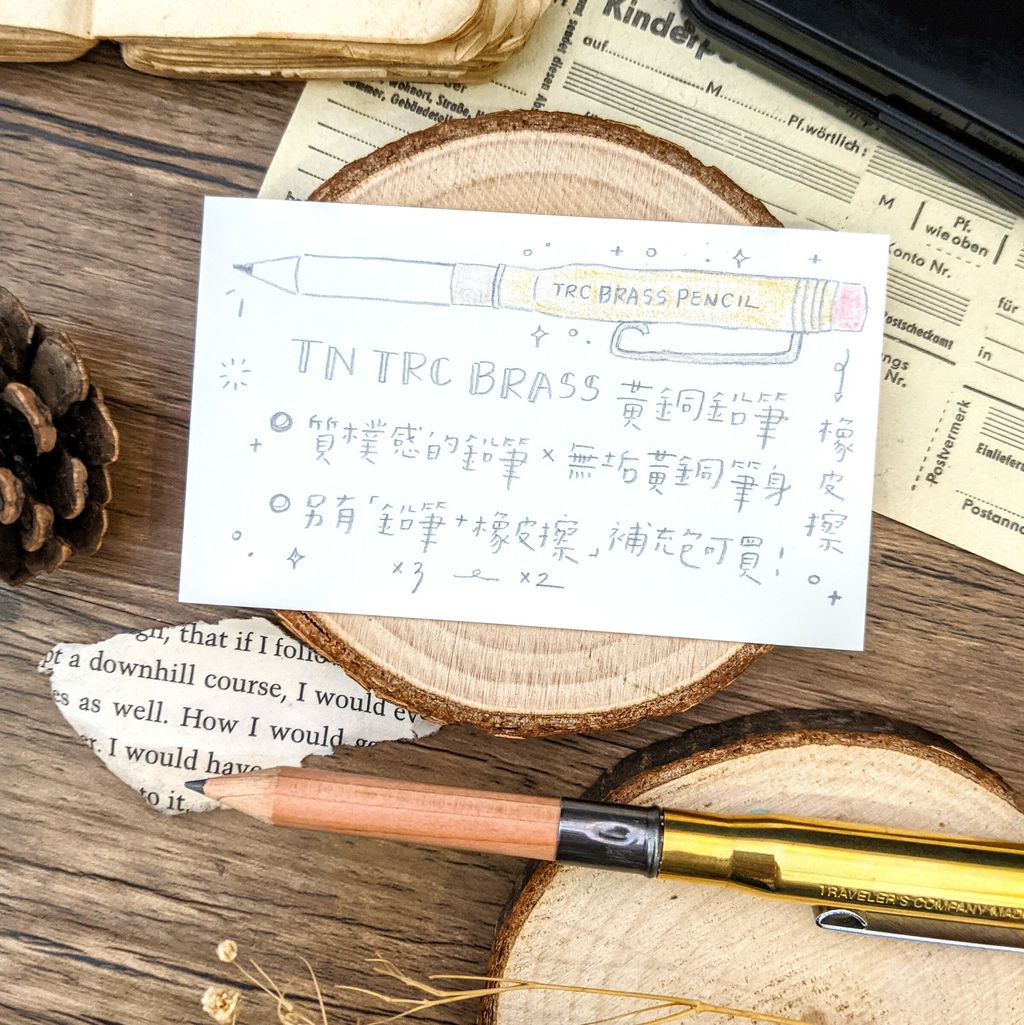 Kinderpo
auf
M.
Pf.wörtlich:
Wohnort, Straße,
Gebäudeteil
sendet diesen
M
Pf.
wie oben
Konto Nr.
für
Postscheckamt
in
Nr.
Postvermerk
TRC BRASS PENCIL
TN TRC BRASS 黃銅鉛筆
質樸感的鉛筆×無垢黃銅筆身
另有「鉛筆+橡皮擦」補充包可買!
×3
×2
橡皮擦
gh, that if I follo
pt a downhill course, I would ev
es as well. How I would g
r. I would have
to it.
TRAVELER'S COMPANY MAD